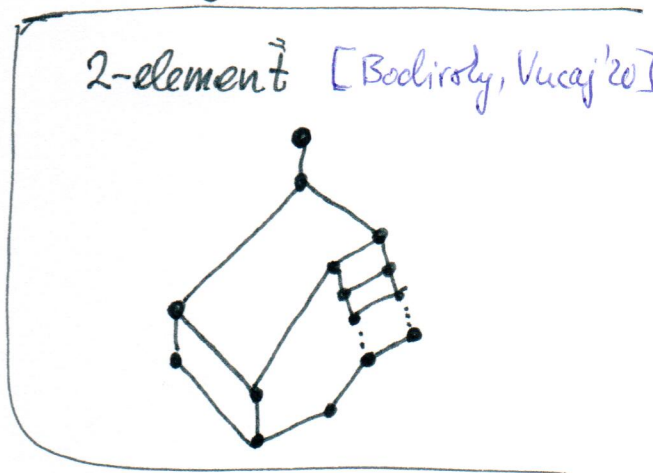 2-element [Bodirsky, Vucaj'20]